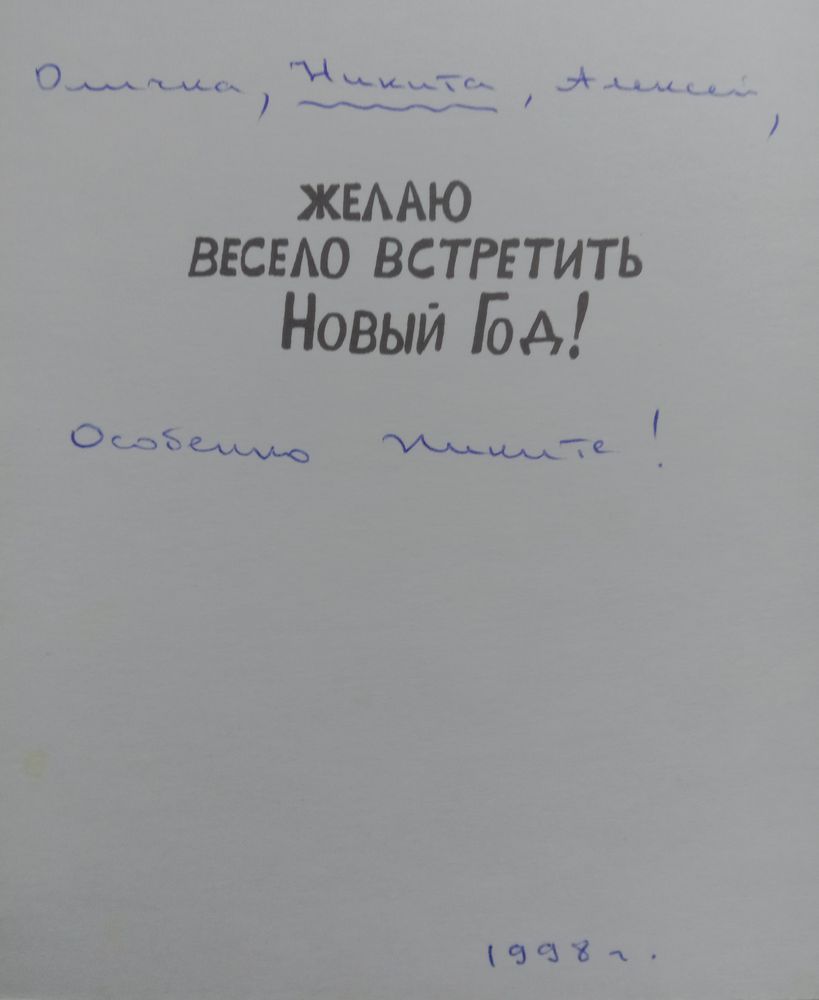 Оличка, Никита, Алексей,
ЖЕЛАЮ
ВЕСЕЛО ВСТРЕТИТЬ
НОВЫЙ ГОД!
Особенно Никите!
1998 г.